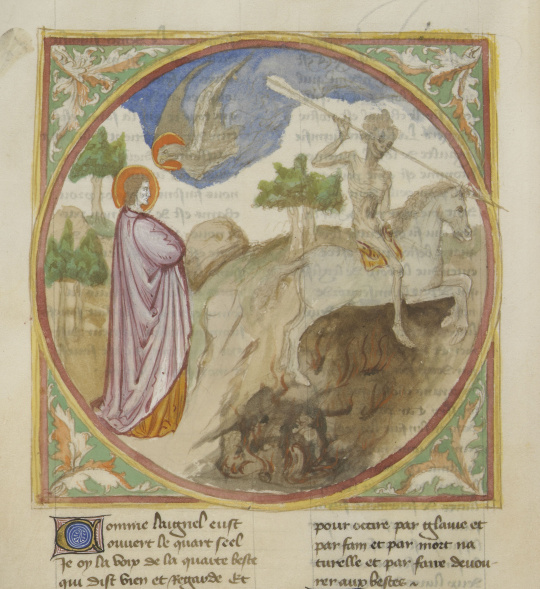 Comme laignel eust
ouuert le quart seel
Je oy la voix de la quarte beste
qui dist vien et Regarde Et
pour occire par glaiue et
par fam et par mort na
turelle et par faire deuou-
rer aux bestes